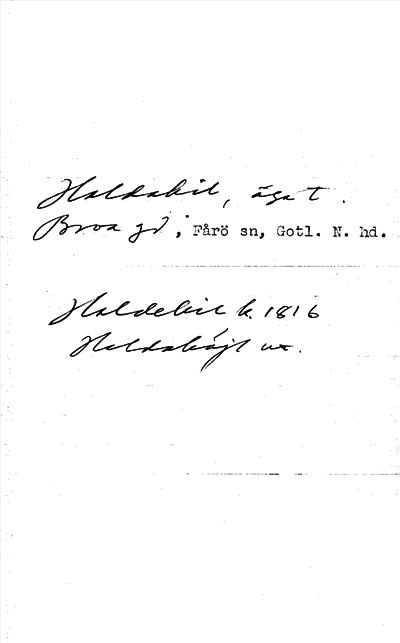 Haldakil, ägo t.
Broa gd, Fårö sn, Gotl. N. hd.
Haldekil k. 1816
Haldakäjl ux.